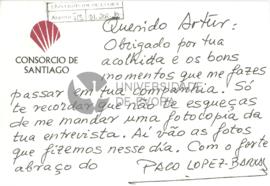 Querido Artur:
Obrigado por tua
acollida e os bons
momentos que me fazes
CONSORCIO DE
SANTIAGO
passar em tua companhia. Só
te recordar que não te esqueças
de me mandar uma fotocopia da
tua entrevista. Aí vão as fotos
que fizemos nesse dia. Com o forte
abraço do PACO LOPEZ-BARXAS
UNIVERSIDADE
DE ÉVORA